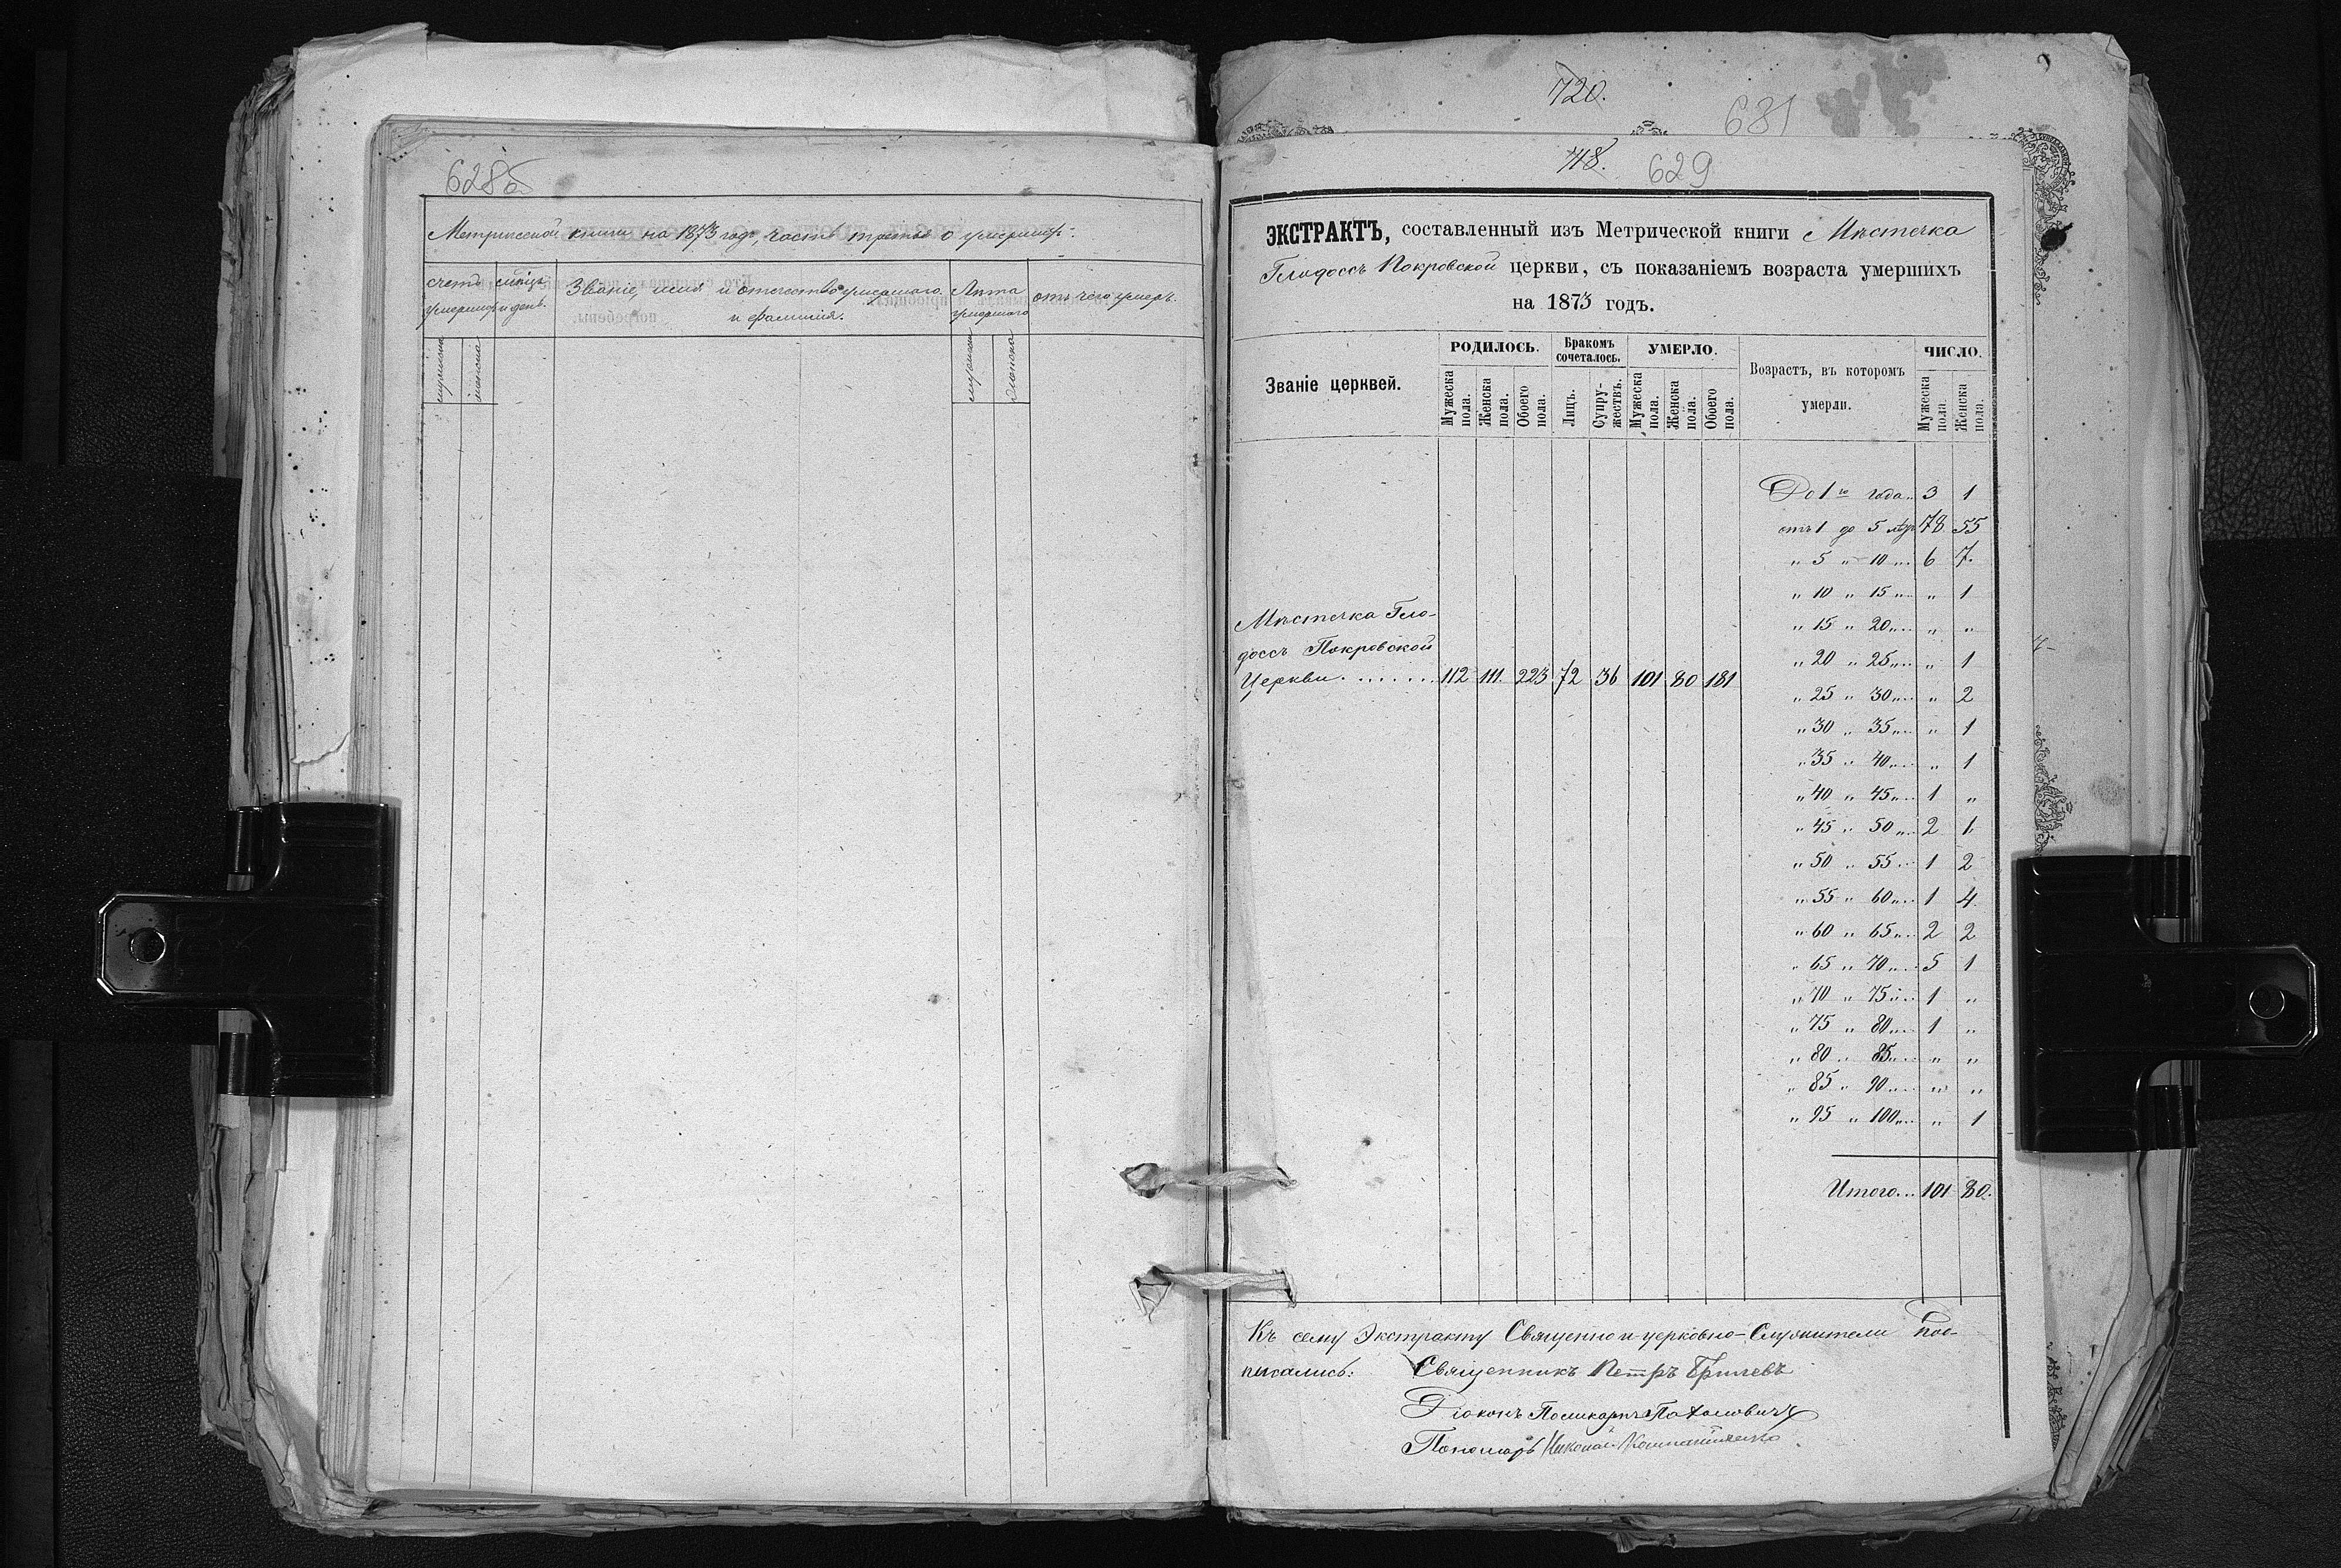 628б
Метрической книги на 1873 годъ, часть третья о умершихъ.
счетъ умершихъ
мѣсяцъ и день.
Званіе, имя и отчество умершаго и фамилія.
Лѣта умершаго
отъ чего умеръ.
мужска
женска
мужска
женска
720.
681
718.
629
ЭКСТРАКТЪ, составленный изъ Метрической книги Мѣстечка
Глодоссъ Покровской церкви, съ показаніемъ возраста умершихъ
на 1873 годъ.
Званіе церквей.
РОДИЛОСЬ.
Бракомъ сочеталось.
УМЕРЛО.
Возрастъ, въ которомъ умерли.
ЧИСЛО.
Мужеска пола.
Женска пола.
Обоего пола.
Лицъ.
Супружествъ.
Мужеска пола.
Женска пола.
Обоего пола.
Мужеска пола.
Женска пола.
До 1го года.. 3 1
отъ 1 до 5 лѣтъ 78 55
" 5 " 10 ".. 6 7.
" 10 " 15 ".. " 1
" 15 " 20 ".. " "
" 20 " 25 ".. " 1
" 25 " 30 ".. " 2
" 30 " 35 ".. " 1
" 35 " 40 ".. " 1
" 40 " 45 ".. 1 "
" 45 " 50 ".. 2 1
" 50 " 55 .. 1 2
" 55 " 60 ".. 1 4.
" 60 " 65 ".. 2 2
" 65 " 70 ".. 5 1
" 70 " 75 ".. 1 "
" 75 " 80 ".. 1 "
" 80 " 85 ".. " "
" 85 " 90 ".. " "
" 95 " 100 ".. " 1
Итого... 101 80.
Мѣстечка Гло-
доссъ Покровской
Церкви. . . . . . . 112 111. 223 72 36 101 80 181
Къ сему Экстракту Священно и церковно-Служители под-
писались: Священникъ Петръ
Діаконъ Поликарпъ
Пономарь Николай